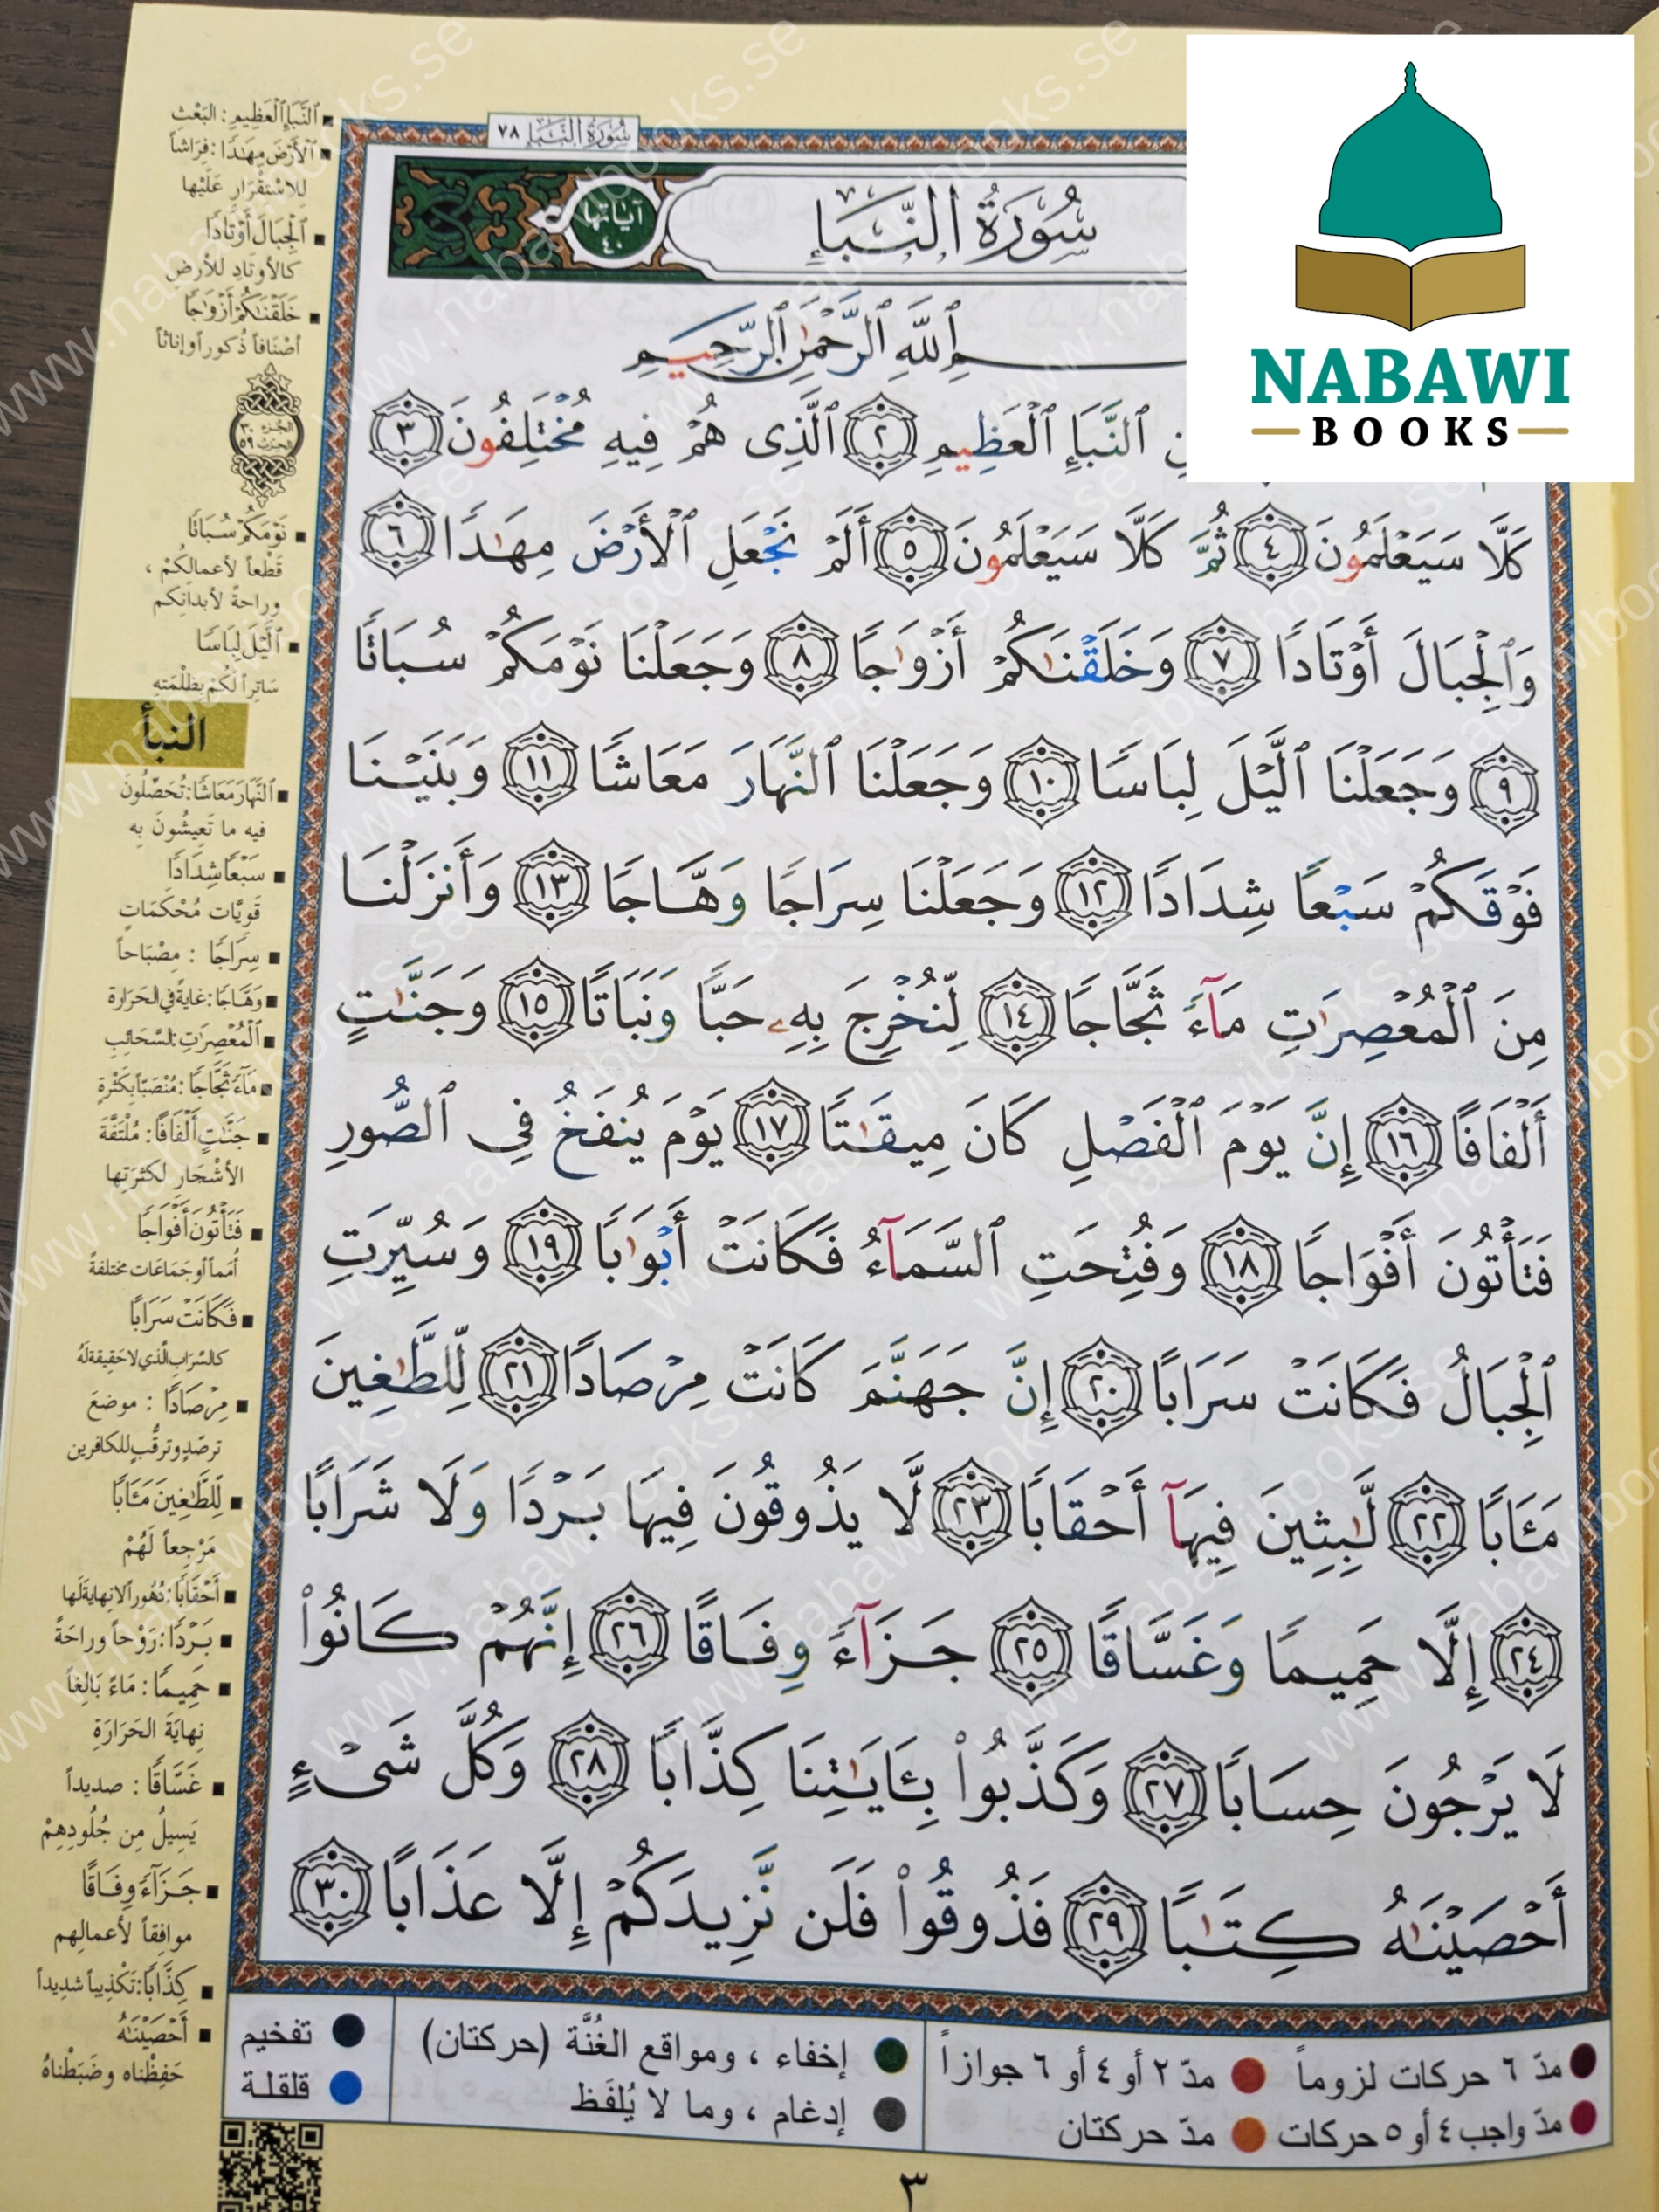 سُورَةُ النَّبَإِ ٧٨
آياتها
٤٠
سُورَةُ النَّبَإِ
ٱللَّهِ ٱلرَّحْمَٰنِ ٱلرَّحِيمِ
ٱلنَّبَإِ ٱلْعَظِيمِ ٢ ٱلَّذِى هُمْ فِيهِ مُخْتَلِفُونَ ٣
كَلَّا سَيَعْلَمُونَ ٤ ثُمَّ كَلَّا سَيَعْلَمُونَ ٥ أَلَمْ نَجْعَلِ ٱلْأَرْضَ مِهَٰدًا ٦
وَٱلْجِبَالَ أَوْتَادًا ٧ وَخَلَقْنَٰكُمْ أَزْوَٰجًا ٨ وَجَعَلْنَا نَوْمَكُمْ سُبَاتًا
٩ وَجَعَلْنَا ٱلَّيْلَ لِبَاسًا ١٠ وَجَعَلْنَا ٱلنَّهَارَ مَعَاشًا ١١ وَبَنَيْنَا
فَوْقَكُمْ سَبْعًا شِدَادًا ١٢ وَجَعَلْنَا سِرَاجًا وَهَّاجًا ١٣ وَأَنزَلْنَا
مِنَ ٱلْمُعْصِرَٰتِ مَآءً ثَجَّاجًا ١٤ لِّنُخْرِجَ بِهِۦ حَبًّا وَنَبَاتًا ١٥ وَجَنَّٰتٍ
أَلْفَافًا ١٦ إِنَّ يَوْمَ ٱلْفَصْلِ كَانَ مِيقَٰتًا ١٧ يَوْمَ يُنفَخُ فِى ٱلصُّورِ
فَتَأْتُونَ أَفْوَاجًا ١٨ وَفُتِحَتِ ٱلسَّمَآءُ فَكَانَتْ أَبْوَٰبًا ١٩ وَسُيِّرَتِ
ٱلْجِبَالُ فَكَانَتْ سَرَابًا ٢٠ إِنَّ جَهَنَّمَ كَانَتْ مِرْصَادًا ٢١ لِّلطَّٰغِينَ
مَـَٔابًا ٢٢ لَّٰبِثِينَ فِيهَآ أَحْقَابًا ٢٣ لَّا يَذُوقُونَ فِيهَا بَرْدًا وَلَا شَرَابًا
٢٤ إِلَّا حَمِيمًا وَغَسَّاقًا ٢٥ جَزَآءً وِفَاقًا ٢٦ إِنَّهُمْ كَانُوا۟
لَا يَرْجُونَ حِسَابًا ٢٧ وَكَذَّبُوا۟ بِـَٔايَٰتِنَا كِذَّابًا ٢٨ وَكُلَّ شَىْءٍ
أَحْصَيْنَٰهُ كِتَٰبًا ٢٩ فَذُوقُوا۟ فَلَن نَّزِيدَكُمْ إِلَّا عَذَابًا ٣٠
ٱلنَّبَإِ ٱلْعَظِيمِ : البَعْثِ
ٱلْأَرْضَ مِهَٰدًا : فِرَاشاً
للاسْتِقْرَارِ عَلَيْها
ٱلْجِبَالَ أَوْتَادًا
كالأوتَادِ للأرضِ
خَلَقْنَٰكُمْ أَزْوَٰجًا
أصْنَافاً ذُكوراً وإناثاً
الجزء ٣٠
الحزب ٥٩
نَوْمَكُمْ سُبَاتًا
قَطْعاً لأعمالِكُمْ ،
وراحةً لأبدانِكم
ٱلَّيْلَ لِبَاسًا
سَاتِراً لَكُمْ بِظُلْمَتِهِ
النبأ
ٱلنَّهَارَ مَعَاشًا : تُحَصِّلُونَ
فيه ما تَعِيشُونَ بِهِ
سَبْعًا شِدَادًا
قَوِيَّات مُحْكَمَاتٍ
سِرَاجًا : مِصْبَاحاً
وَهَّاجًا : غايةً في الحَرَارة
ٱلْمُعْصِرَٰتِ : السَّحَائِبِ
مَآءً ثَجَّاجًا : مُنْصَبّاً بِكَثْرةٍ
جَنَّٰتٍ أَلْفَافًا : مُلْتَفَّةَ
الأشْجَارِ لكثرَتِها
فَتَأْتُونَ أَفْوَاجًا
أُمَماً أو جَمَاعَات مختلفةً
فَكَانَتْ سَرَابًا
كالسَّرَابِ الَّذي لا حَقِيقةَ لَهُ
مِرْصَادًا : موضعَ
ترصّدٍ وترقّبٍ للكافرين
لِّلطَّٰغِينَ مَـَٔابًا
مَرْجِعاً لَهُمْ
أَحْقَابًا : دُهُوراً لا نِهايةَ لَها
بَرْدًا : رَوْحاً وراحَةً
حَمِيمًا : مَاءً بَالِغاً
نِهايَةَ الحَرَارَةِ
غَسَّاقًا : صديداً
يَسِيلُ مِن جُلُودِهِمْ
جَزَآءً وِفَاقًا
موافِقاً لأعمالِهم
كِذَّابًا : تَكْذِيباً شديداً
أَحْصَيْنَٰهُ
حَفِظْناه وضَبَطْناهُ
مدّ ٦ حركات لزوماً
مدّ ٢ أو ٤ أو ٦ جوازاً
مدّ واجب ٤ أو ٥ حركات
مدّ حركتان
إخفاء ، ومواقع الغُنَّة (حركتان)
إدغام ، وما لا يُلفَظ
تفخيم
قلقلة
٣
NABAWI
BOOKS
www.nabawibooks.se